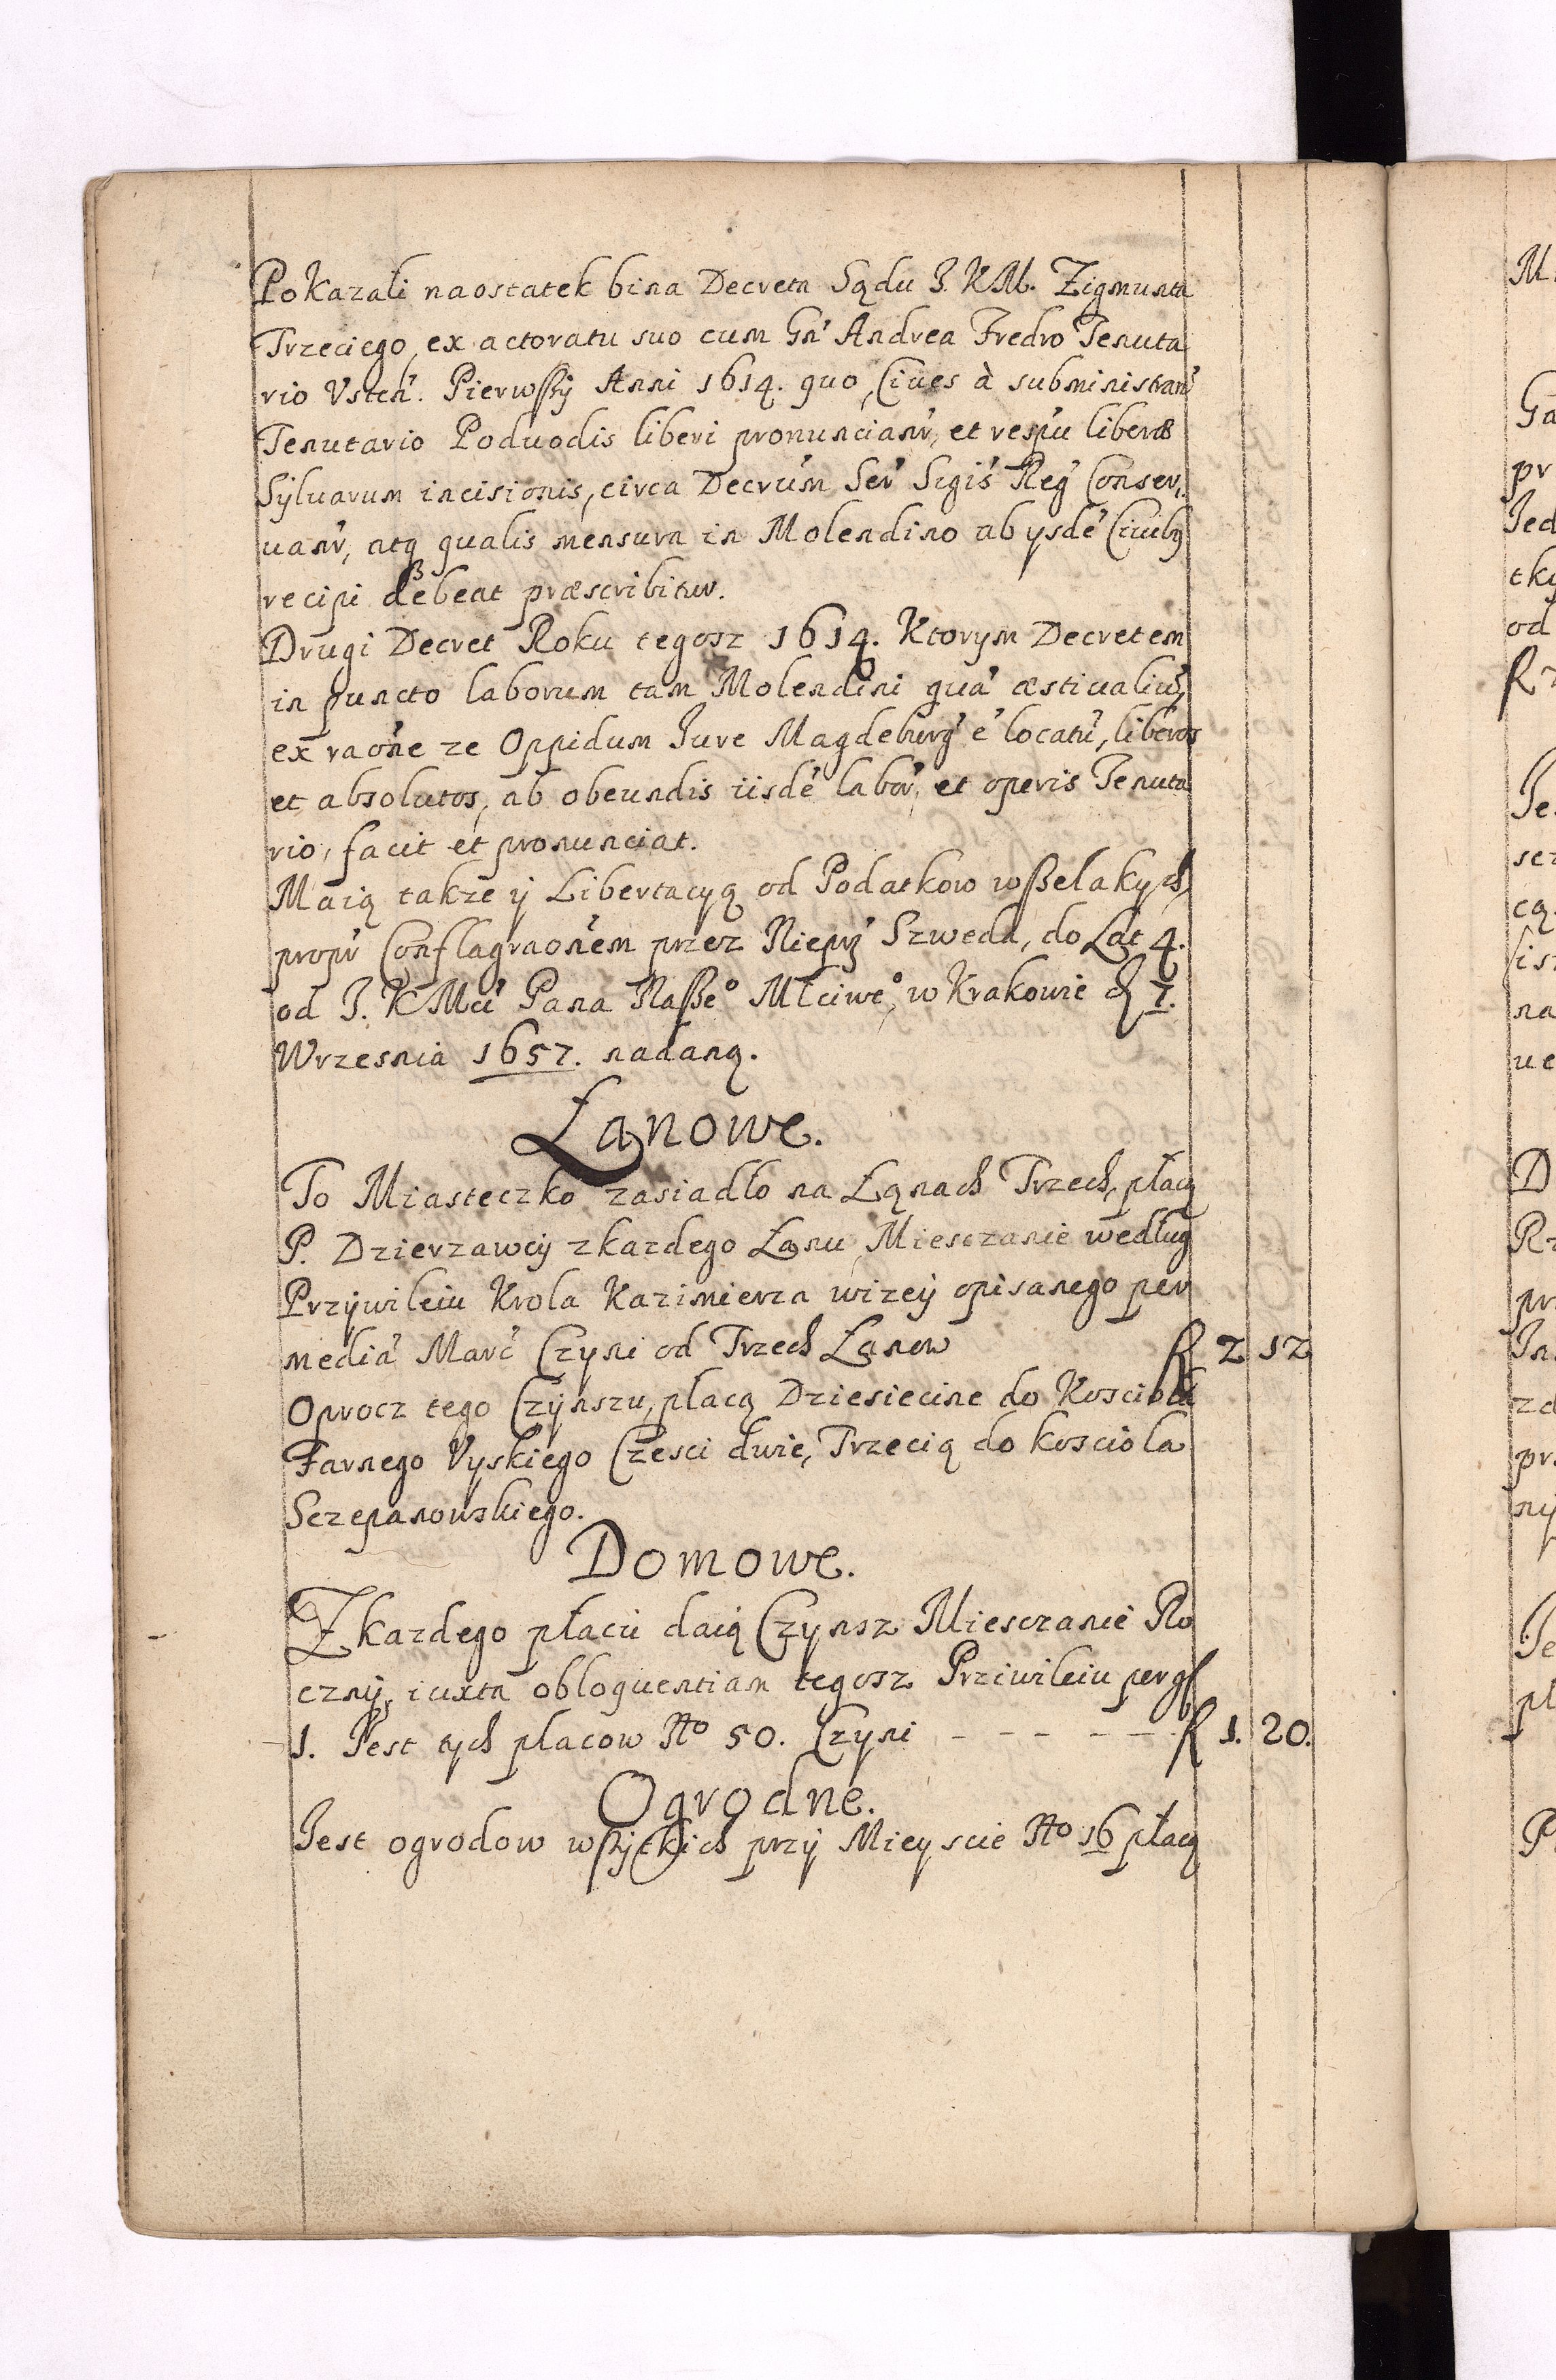 Pokazali naostatek bina Decreta Sądu J. K M. Zigmunta
Trzeciego, ex actoratu suo cum Gn̄ Andrea Fredro Tenuta
rio Vsten̄. Pierwßy Anni 1614. quo, Ciues à subministran̄
Tenutario Poduodis liberi pronuncianr̄, et respu liberæ
Syluarum incisionis, circa Decrūm Ser̄ Sigis̄ Reḡ Conser,
uanr̄, atq qualis mensura in Molendino ab ysde Ciuibq
recipi debeat præscribitur.
Drugi Decret Roku tegosz 1614. Ktorym Decretem
in puncto laborum tam Molendini qua æstiualiū,
ex raōne ze Oppidum Jure Magdeburḡ e locatū, liberos
et absolutos, ab obeundis iisdē labor̄, et operis Tenuta
rio, facit et pronunciat.
Maią takze ÿ Libertacyą od Podatkow wßelakych,
propr̄ Conflagraonēm przez Niepr̄ Szweda, do Lat 4.
od J. K Mci Pana Naßeº Mlciweº, w Krakowie d 7.
Wrzesnia 1657. nadaną.
Łanowe.
To Miasteczko zasiadło na Łąnach Trzech, płacą
P. Dzierzawcy zkazdego Łanu Miesczanie według
Przywileiu Krola Kazimierza wizey opisanego per
mediā Marc̄ Czyni od Trzech Łanow f 2 12
Oprocz tego Czynszu, płacą Dziesiecine do Kosciola
Farnego Vyskiego Czesci dwie, Trzecią do kosciola
Sczepanowskiego.
Domowe.
Z kazdego płacu daią Czynsz Miesczanie Ro
czny, iuxta obloquentiam tegosz Priwileiu per gſ
1. Jest tych placow No 50. Czyni - - - - - f 1. 20.
Ogrodne.
Jest ogrodow wßytkich przy Mieyscie No 16 płacą